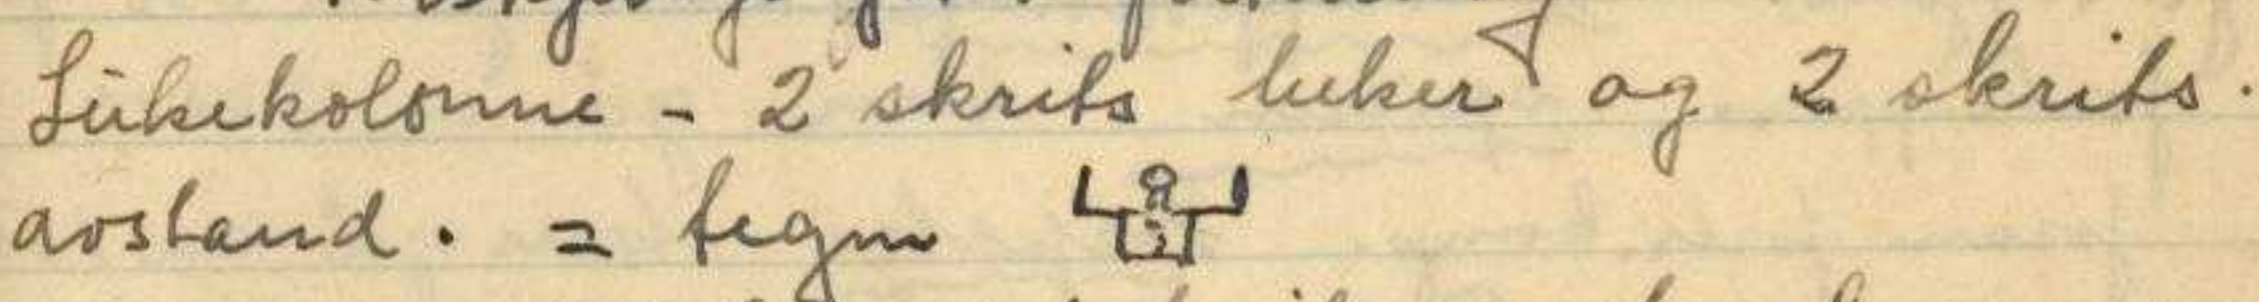 Lükekolonne - 2 skrits luker og 2 skrits.
avstand. = tegn